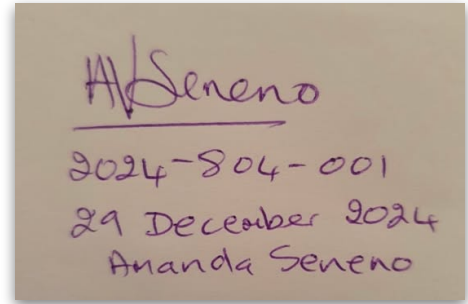 AVSeneno
2024-804-001
29 December 2024
Ananda Seneno